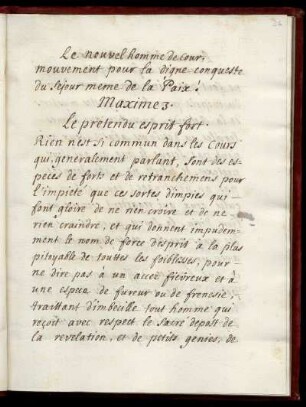 Le nouvel homme de cour,
mouvement pour la digne conqueste
du sejour meme de la Paix!
Maxime 3.
Le pretendu esprit fort.
Rien n'est si commun dans les Cours
qui, generalement parlant, sont des es-
peces de forts et de retranchemens pour
l'impieté que ces sortes d'impies qui
font gloire de ne rien croire et de ne
rien craindre, et qui donnent impudem-
ment le nom de force d'esprit à la plus
pitoyable de touttes les foiblesses, pour
ne dire pas à un accez fiévreux et à
une espece de fureur ou de frenesie,
traittant d'imbecille tout homme qui
reçoit avec respect le sacré depost de
la revelation, et de petits genies, de